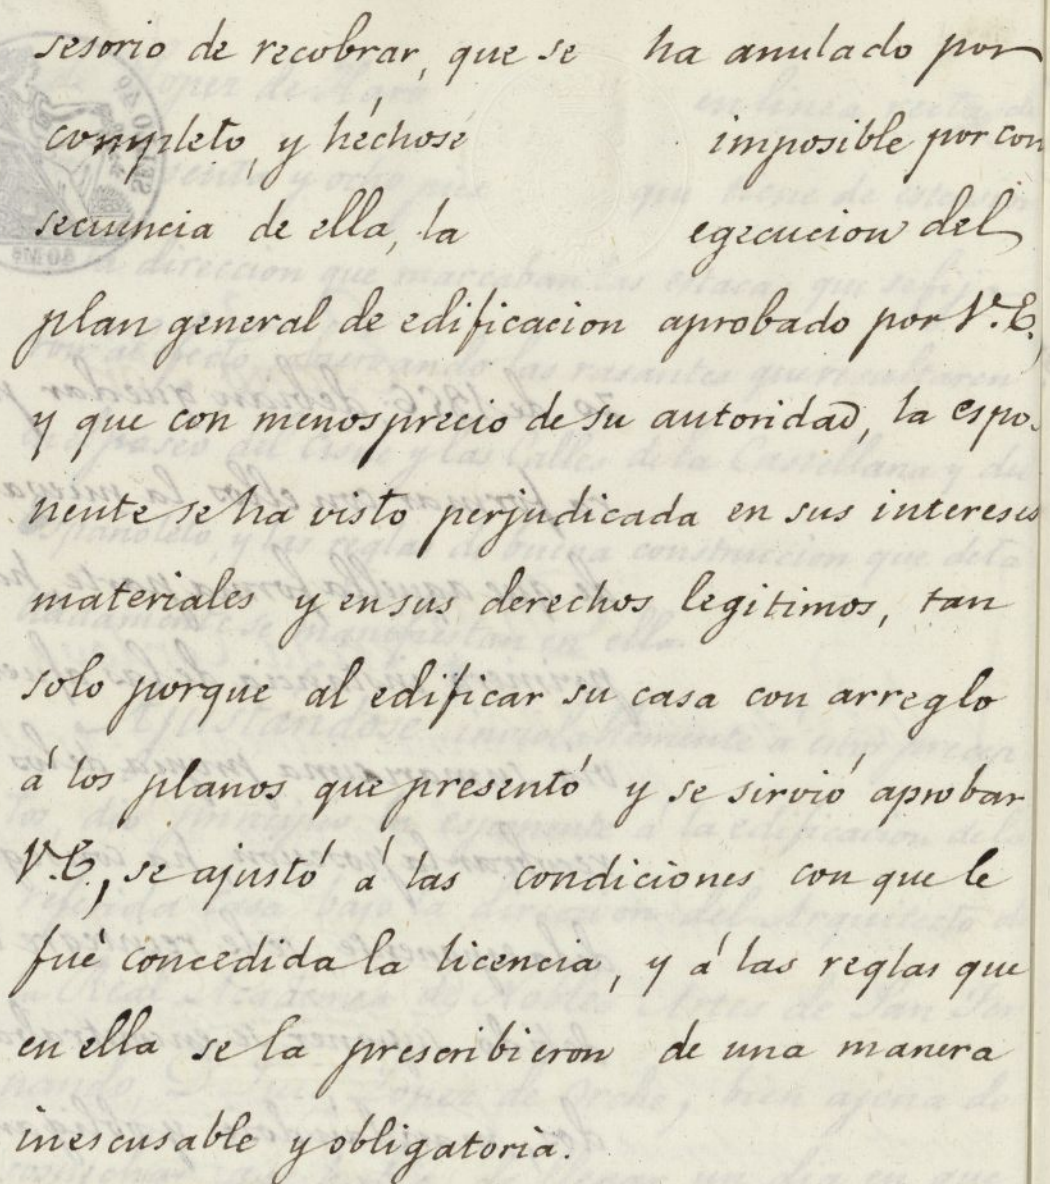 sesorio de recobrar, que se ha anulado por
completo, y héchose imposible por con
secuencia de ella, la egecucion del
plan general de edificacion aprobado por V.E.,
y que con menosprecio de su autoridad, la espo-
nente se ha visto perjudicada en sus intereses
materiales y en sus derechos legitimos, tan
solo porque al edificar su casa con arreglo
á los planos que presentó y se sirvió aprobar
V.E., se ajustó á las condiciones con que le
fué concedida la licencia, y á las reglas que
en ella se la prescribieron de una manera
inescusable y obligatoria.